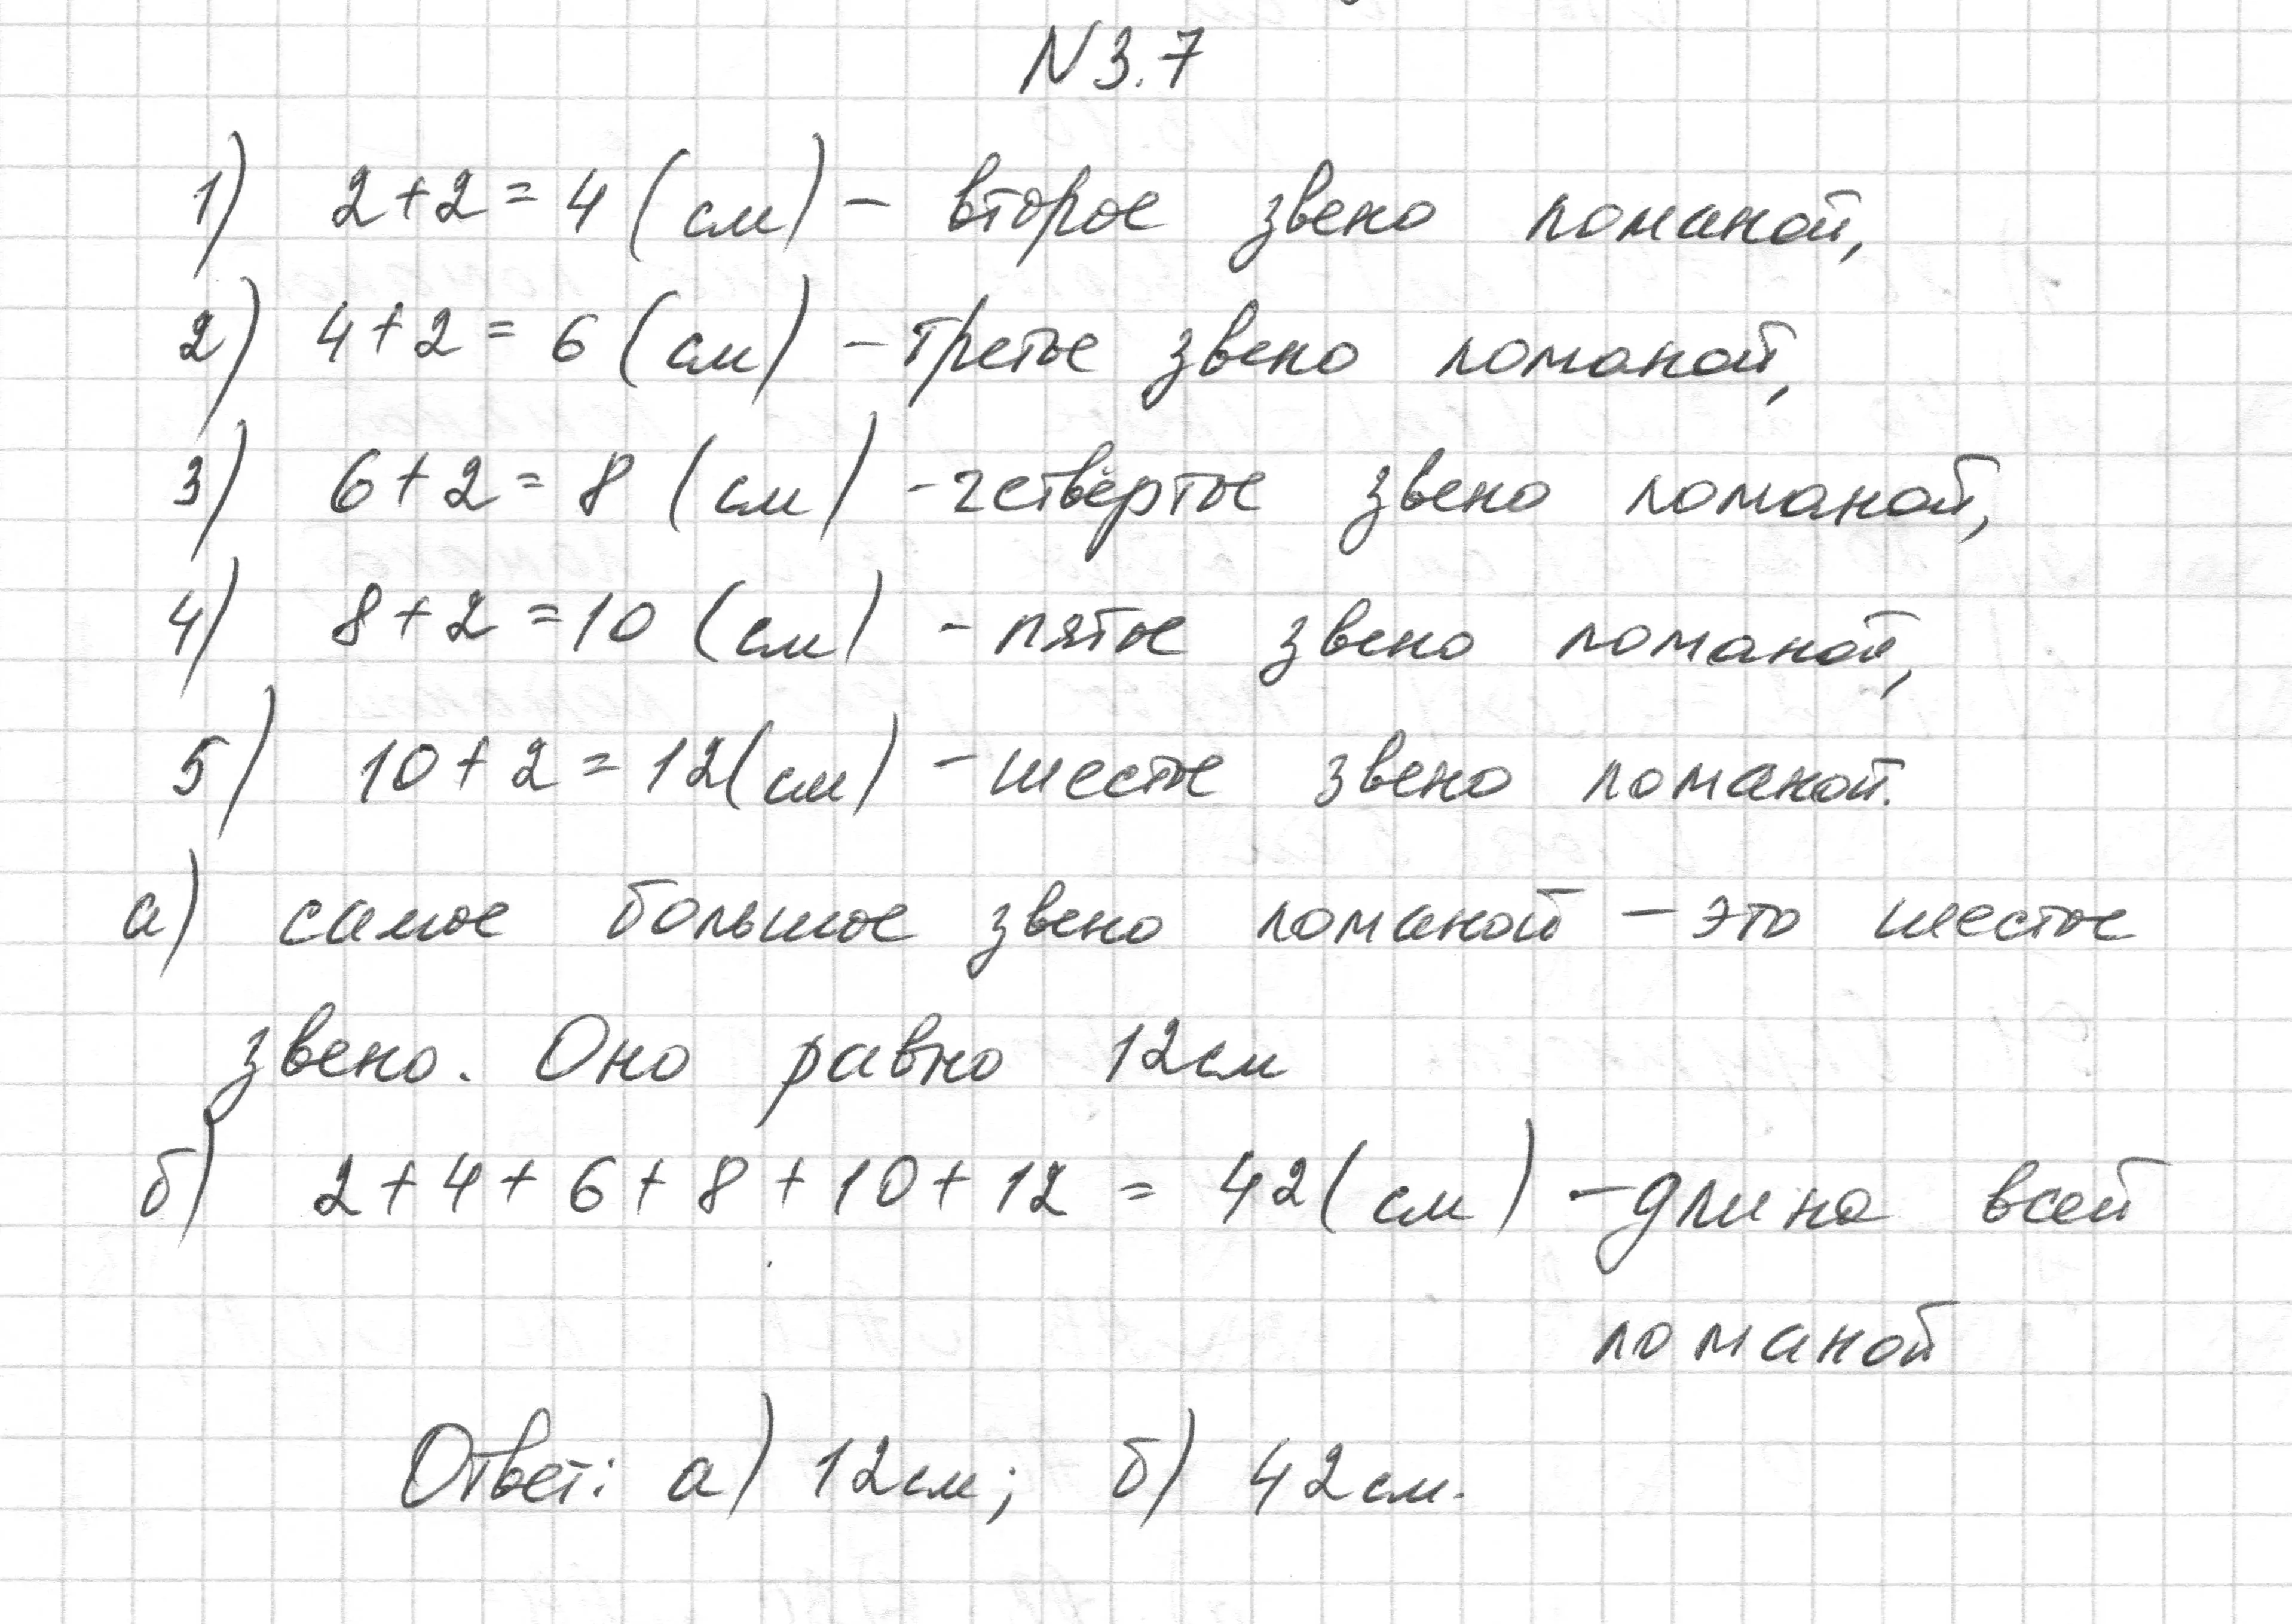 N 3.7
1) 2+2=4 (см) – второе звено ломаной,
2) 4+2=6 (см) – третье звено ломаной,
3) 6+2=8 (см) - четвёртое звено ломаной,
4) 8+2=10 (см) - пятое звено ломаной,
5) 10+2=12 (см) - шестое звено ломаной.
а) самое большое звено ломаной – это шестое
звено. Оно равно 12см
б) 2+4+6+8+10+12 = 42 (см) – длина всей
ломаной
Ответ: а) 12см; б) 42см.